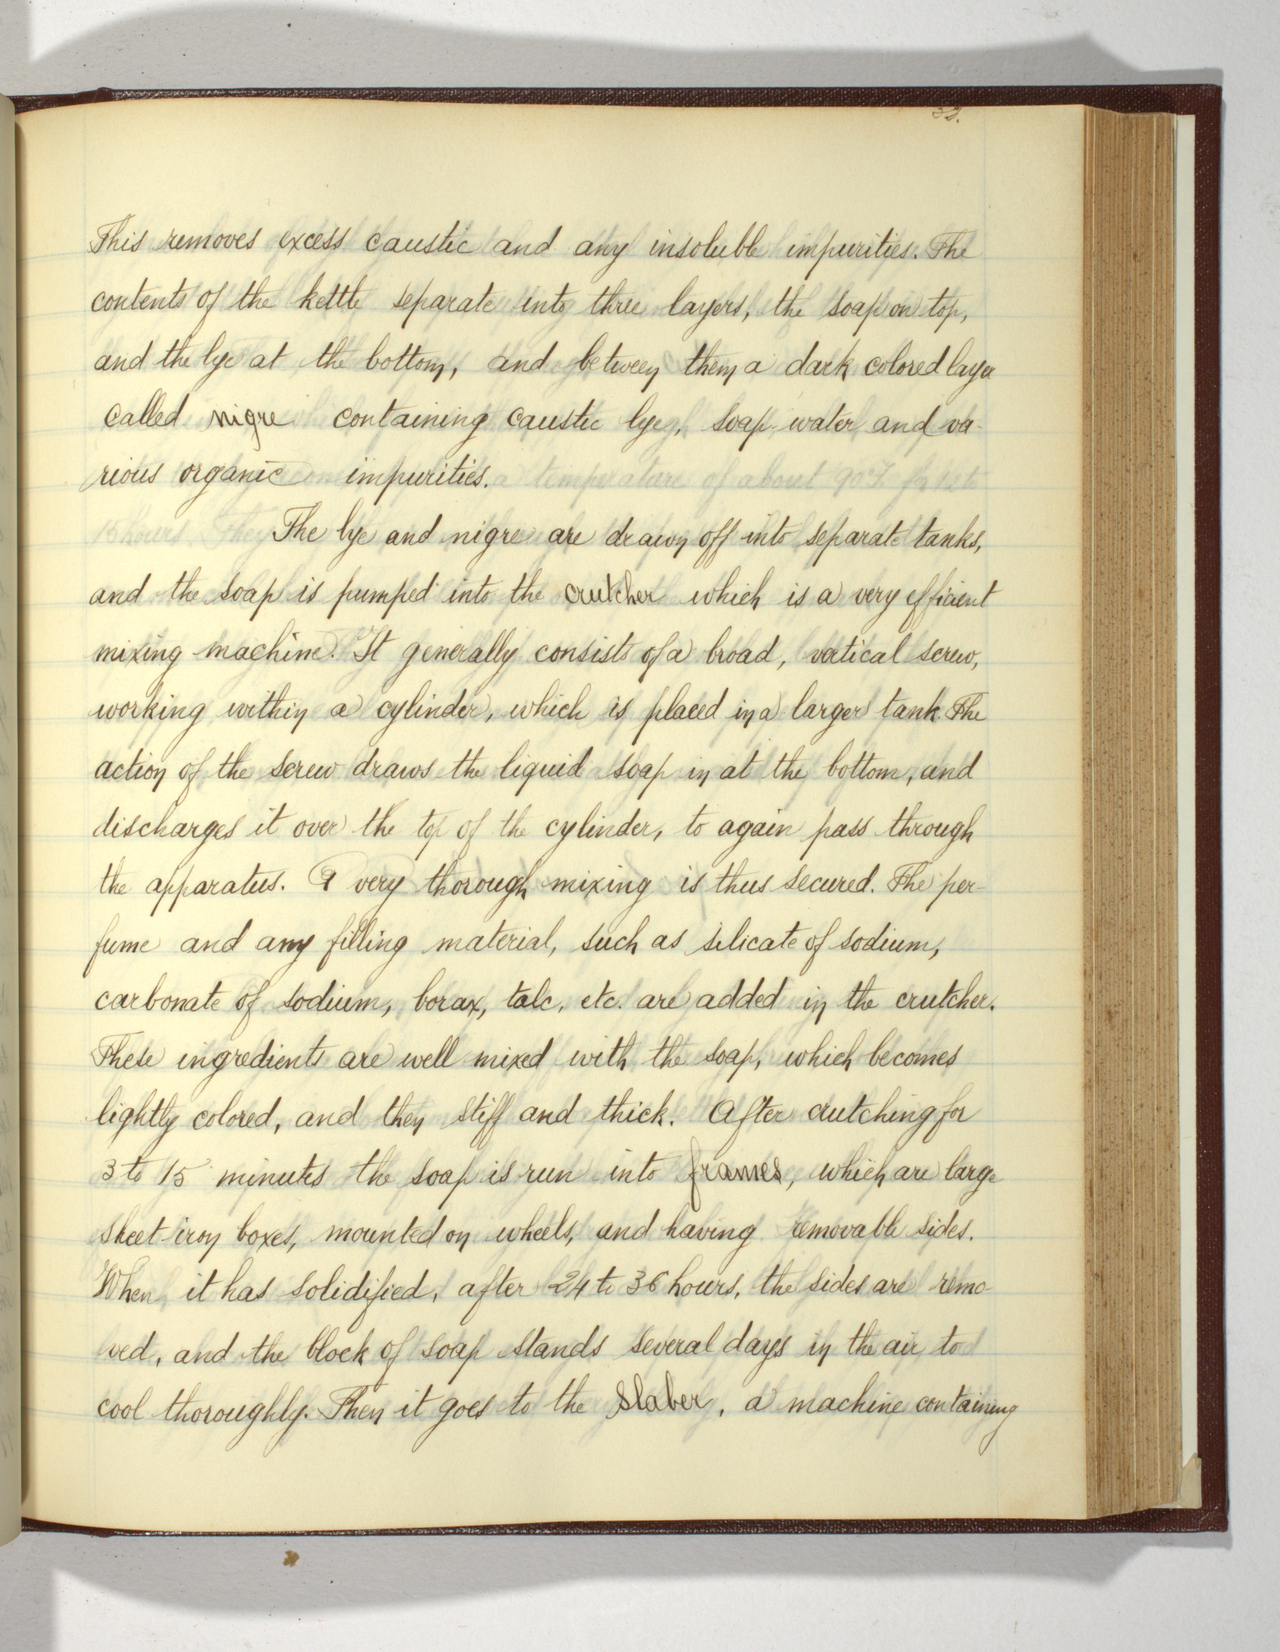 This removes excess caustic and any insoluble impurities. The
contents of the kettle separate into three layers, the soap on top,
and the lye at the bottom, and between them a dark colored layer
called nigre containing caustic lye, soap water and va-
rious organic impurities.
The lye and nigre are drawn off into separate tanks,
and the soap is pumped into the crutcher which is a very efficient
mixing machine. It generally consists of a broad, vertical screw,
working within a cylinder, which is placed in a larger tank. The
action of the screw draws the liquid soap in at the bottom, and
discharges it over the top of the cylinder, to again pass through
the apparatus. A very thorough mixing is thus secured. The per-
fume and any filling material, such as silicate of sodium,
carbonate of sodium, borax, talc, etc. are added in the crutcher.
These ingredients are well mixed with the soap, which becomes
lightly colored, and then stiff and thick. After crutching for
3 to 15 minutes the soap is run into frames, which are large
sheet-iron boxes, mounted on wheels, and having removable sides.
When it has solidified, after 24 to 36 hours, the sides are remo-
ved, and the block of soap stands several days in the air to
cool thoroughly. Then it goes to the slaber, a machine containing